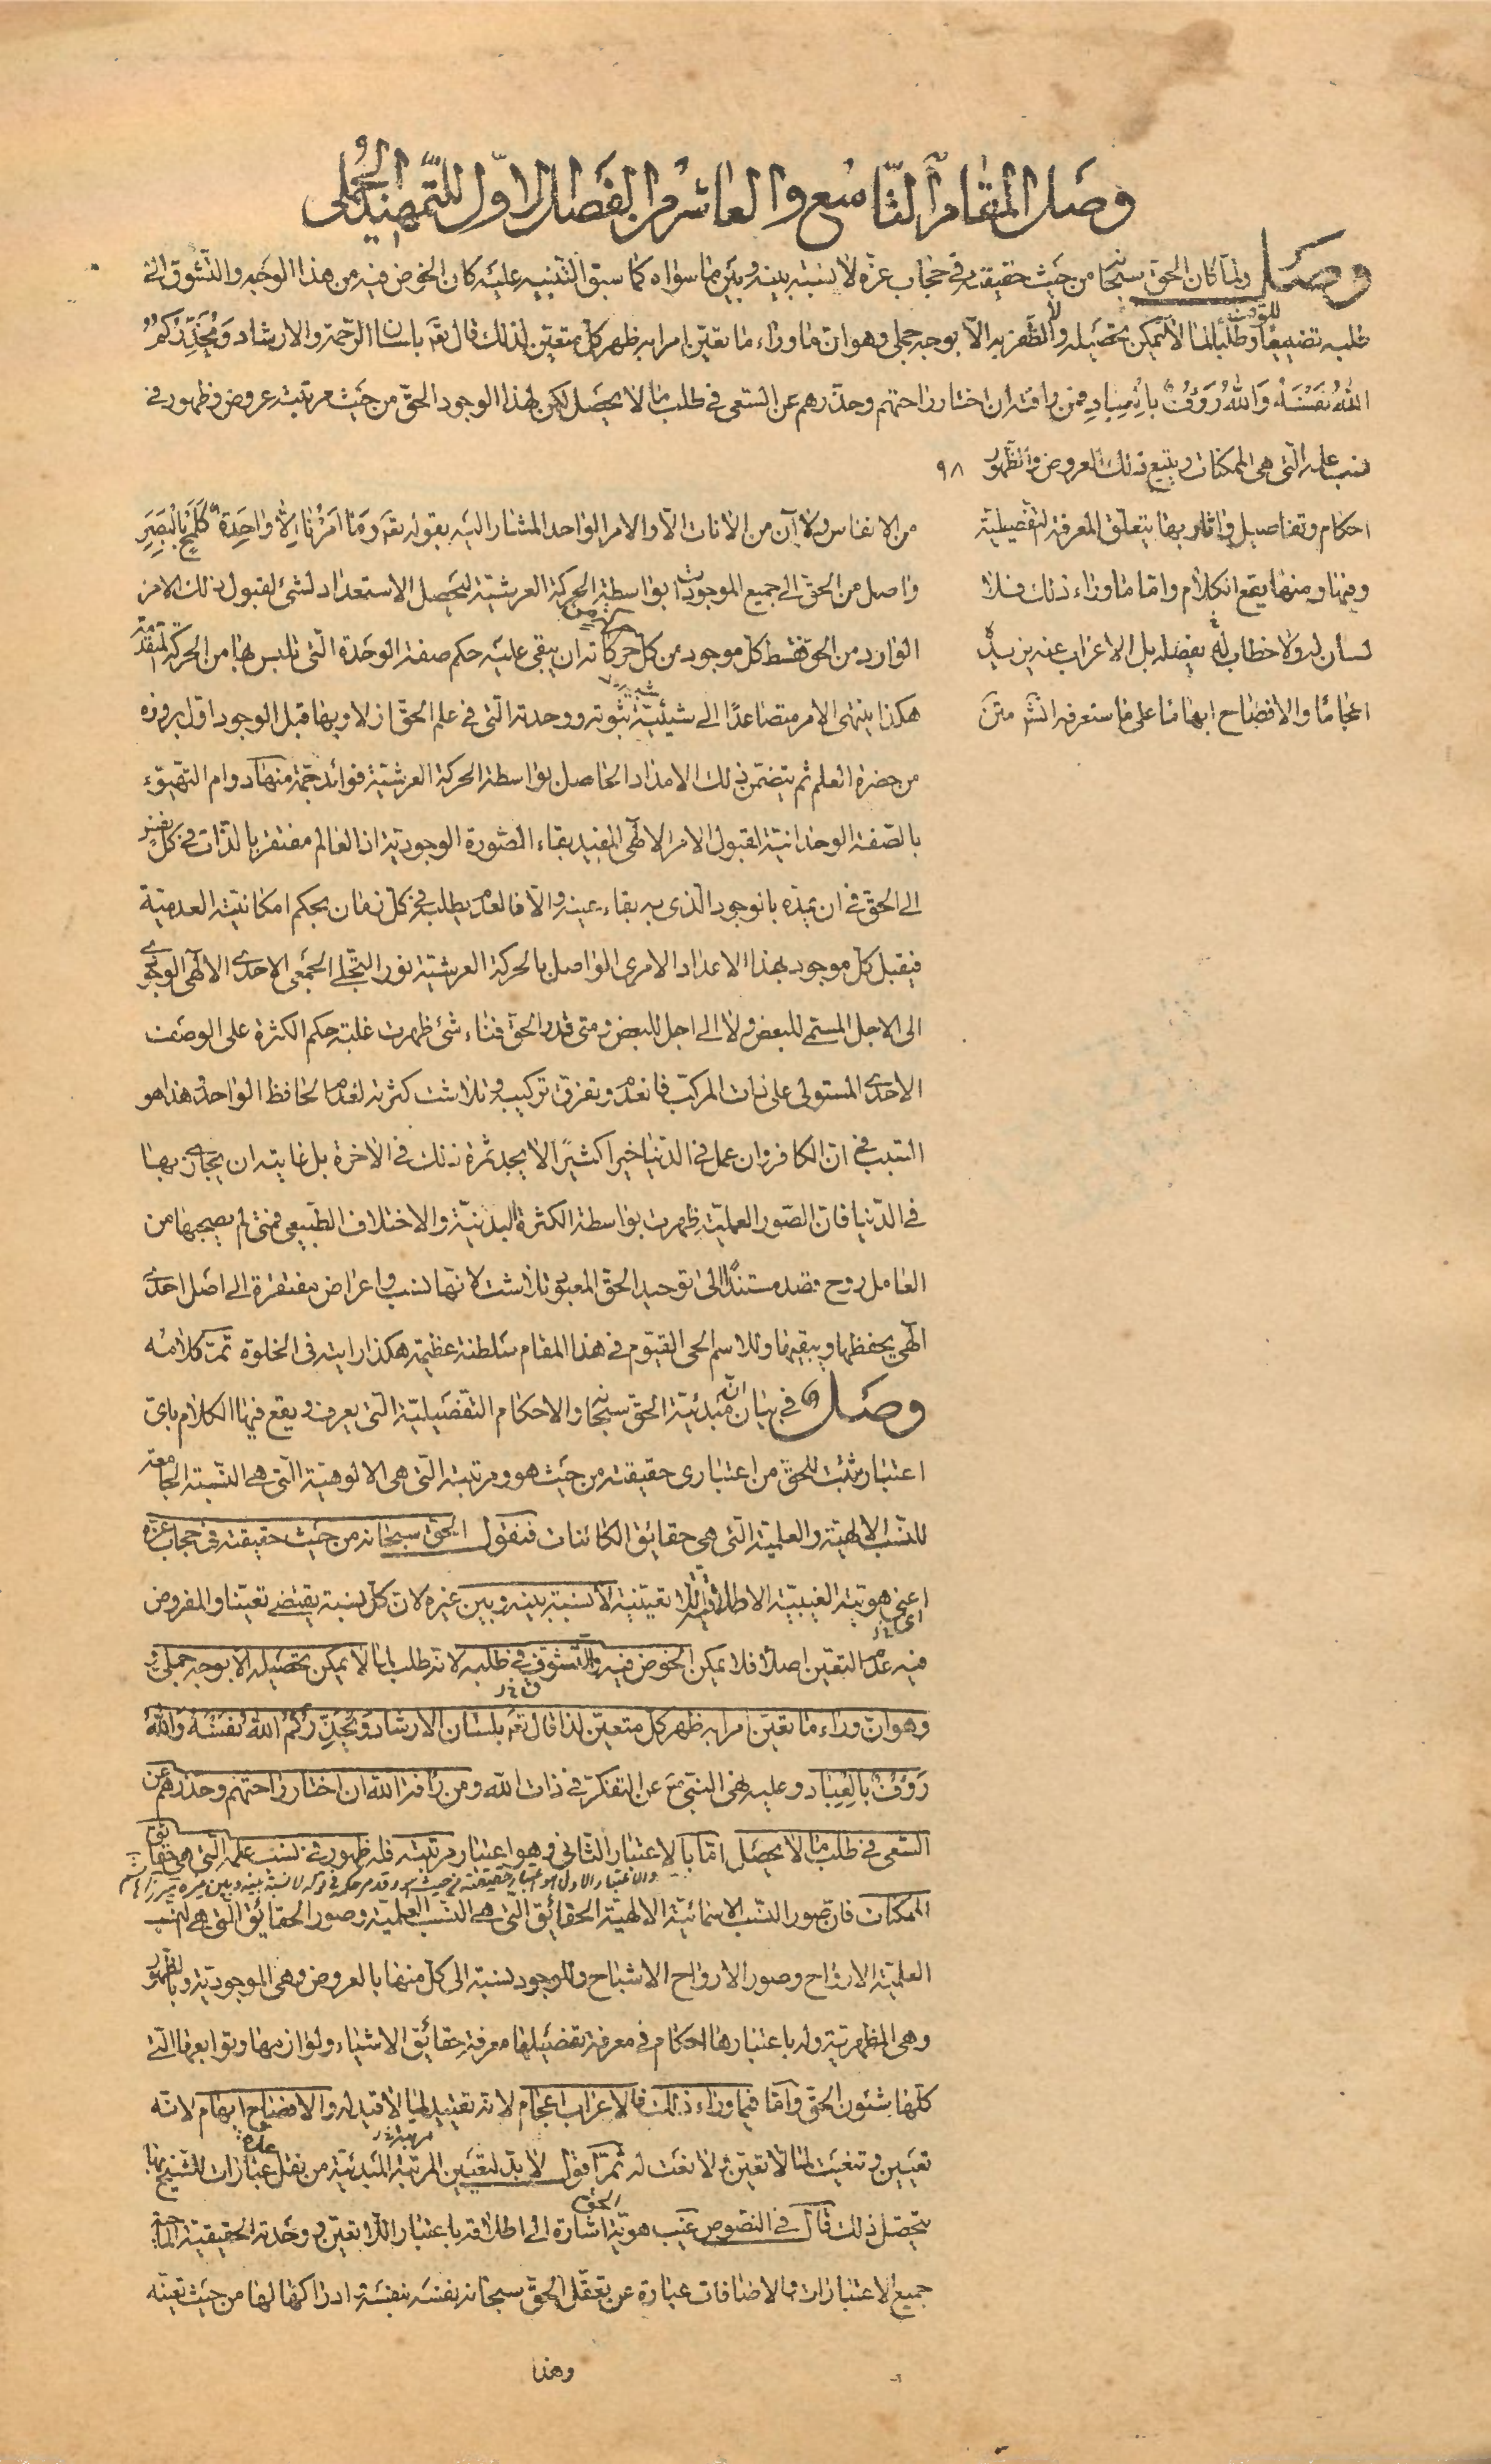 وصل المقام التاسع والعاشر من الفصل الاول للتمهيد الجملى
وصل ولما كان الحق سبحانه من حيث حقيقته فى حجاب عزه لا نسبة بينه وبين ما سواه كما سبق التنبيه عليه كان الخوض فيه من هذا الوجه والتشوق الى
طلبه تضييعا للوقت وطلبا لما لا يمكن تحصيله ولا الظفر به الا بوجه جملى وهو ان ما وراء ما تعين امرا به ظهر كل متعين لذلك قال تع بلسان الرحمة والارشاد وَيُحَذِّرُكُمُ
اللّٰهُ نَفْسَهُ وَاللّٰهُ رَؤُفٌ بِالْعِبَادِ فمن رافته ان اختار راحتهم وحذرهم عن السعى فى طلب ما لا يحصل لكن لهذا الوجود الحق من حيث مرتبته عروض وظهور فى
نسب علمه التى هى الممكنات ويتبع ذلك العروض والظهور ٩٨
احكام وتفاصيل واثار بها يتعلق المعرفة التفصيلية
وفيها ومنها يقع الكلام واما ما وراء ذلك فلا
لسان له ولا خطاب له يفصله بل الاعراب عنه يزيده
اعجاما والافصاح ابهاما على ما ستعرفه انش متن
من الانفاس ولا آن من الانات الا والامر الواحد المشار اليه بقوله تع وَمَا اَمْرُنَا اِلَّا وَاحِدَةٌ كَلَمْحٍ بِالْبَصَرِ
واصل من الحق الى جميع الموجودات بواسطة الحركة العرشية ليحصل الاستعداد لشئ لقبول ذلك الامر
الوارد من الحق فقسط كل موجود من كل حركة حركاته ان يبقى عليه حكم صفة الوحدة التى تلبس بها من الحركة المتقدمة
هكذا ينتهى الامر متصاعدا الى شيئية ثبوته ووحدته التى فى علم الحق ازلا وبها قبل الوجود اول بروزه
من حضرة العلم ثم يتضمن ذلك الامداد الحاصل بواسطة الحركة العرشية فوائد جمة منها دوام التهيؤ
بالصفة الوحدانية لقبول الامر الالهى المفيد بقاء الصورة الوجودية اذ العالم مفتقر بالذات فى كل نفس
الى الحق فى ان يمده بالوجود الذى به بقاء عينه والا فالعدم يطلبه فى كل زمان بحكم امكانيته العدمية
فيقبل كل موجود بهذا الاعداد الامرى الواصل بالحركة العرشية نور التجلى الجمعى الاحدى الالهى الوجودى
الى الاجل المسمى للبعض ولا الى اجل للبعض ومتى قدر الحق فناء شئ ظهرت غلبة حكم الكثرة على الوصف
الاحدى المستولى على ذات المركب فانعدم وتفرق تركيبه وتلاشت كثرته لعدم الحافظ الواحد وهذا هو
السبب فى ان الكافر وان عمل فى الدنيا خيرا كثيرا لا يجد ثمرة ذلك فى الاخرة بل غايته ان يجازى بها
فى الدنيا فان الصور العملية ظهرت بواسطة الكثرة البدنية والاختلاف الطبيعى فمتى لم يصحبها من
العامل روح قصد مستند الى توحيد الحق المعبود تلاشت لانها نسب واعراض مفتقرة الى اصل احدى
الهى يحفظها ويبقيها وللاسم الحى القيوم فى هذا المقام سلطنة عظيمة هكذا رايته فى الخلوة تمت كلامه
وصل فى بيان ان مبدئية الحق سبحانه والاحكام التفصيلية التى يعرف ويقع فيها الكلام باى
اعتبار يثبت للحق من اعتبارى حقيقته من حيث هو ومرتبته التى هى الالوهية التى هى النسبة الجامعة
للنسب الالهية والعلمية التى هى حقايق الكائنات فنقول الحق سبحانه من حيث حقيقته فى حجاب عزه
اعنى هويته الغيبية الاطلاقية اللا تعينية لا نسبة بينه وبين غيره لان كل نسبة يقتضى تعينا والمفروض
فيه عدم التعين اصلا فلا يمكن الخوض فيه والتشوق فى طلبه لانه طلب لما لا يمكن تحصيله الا بوجه جملى
وهو ان وراء ما تعين امرا به ظهر كل متعين لذا قال تع بلسان الارشاد وَيُحَذِّرُكُمُ اللّٰهُ نَفْسَهُ وَاللّٰهُ
رَؤُفٌ بِالْعِبَادِ وعليه نهى النبى ع عن التفكر فى ذات اللّٰه ومن رافة اللّٰه ان اختار راحتهم وحذرهم عن
السعى فى طلب ما لا يحصل اما بالاعتبار الثانى وهو اعتبار مرتبته فله ظهور فى نسب علمه التى هى حقايق
والاعتبار الاول هو اعتبار حقيقته من حيث هو وقد مر حكمه فى قوله لا نسبة بينه وبين غيره
الممكنات فان صور النسب الاسمائية الالهية الحقائق التى هى النسب العلمية وصور الحقائق التى هى النسب
العلمية الارواح وصور الارواح الاشباح وللوجود نسبة الى كل منها بالعروض وهى الموجودية وبالظهور
وهى المظهرية وله باعتبارها احكام فى معرفة تفصيلها معرفة حقائق الاشياء ولوازمها وتوابعها التى
كلها شئون الحق واما فيما وراء ذلك فالاعراب اعجام لانه تقييد لما لا قيد له والافصاح ابهام لانه
تعيين وتنعيت لما لا تعين ولا نعت له ثم اقول لا بد لتعيين المرتبة المبدئية من نقل عبارات للشيخ بها
يتحصل ذلك قال فى النصوص غيب هوية الحق اشارة الى اطلاقه باعتبار اللا تعين ووحدته الحقيقية الماحية
جميع الاعتبارات والاضافات عبارة عن تعقل الحق سبحانه نفسه بنفسه ادراكها لها من حيث تعينه
وهذا